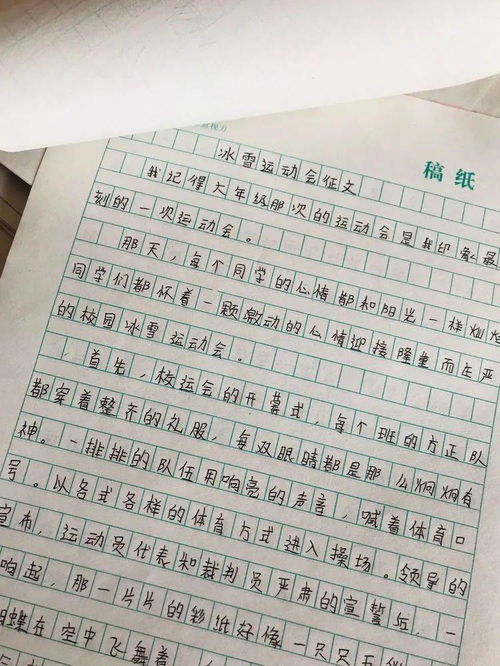 视力
稿纸
冰雪运动会征文
我记得六年级那次的运动会是我印象最
刻的一次运动会。
那天，每个同学的心情都和阳光一样灿烂
同学们都怀着一颗激动的心情迎接隆重而庄严
的校园冰雪运动会。
首先，校运会的开幕式，每个班的方正队
都穿着整齐的礼服，每双眼睛都是那么炯炯有
神。一排排的队伍用响亮的声音，喊着体育口
号。以各式各样的体育方式进入操场。领导的
宣布，运动员代表和裁判员严肃的宣誓后，一
响起，那一片片的彩纸好像一只只五
蝴蝶在空中飞舞着